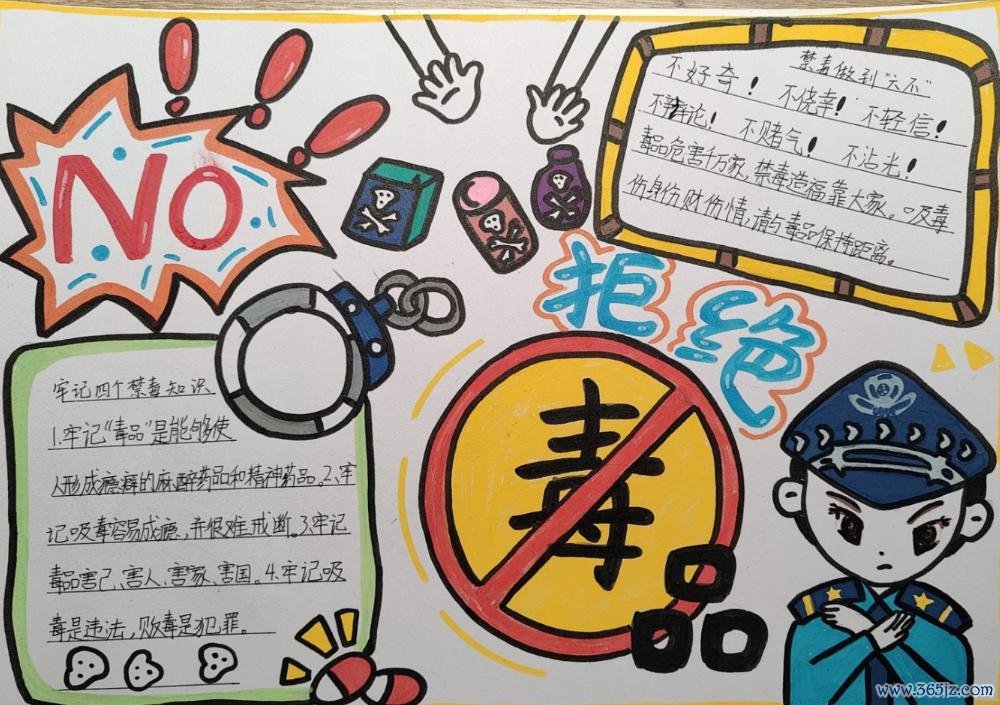 NO
禁毒做到"六不"
不好奇！ 不侥幸！ 不轻信！
不辩论！ 不赌气！ 不沾光！
毒品危害千万家，禁毒造福靠大家。吸毒
伤身伤财伤情，请与毒品保持距离。
拒绝
毒品
牢记四个禁毒知识、
1.牢记"毒品"是能够使
人形成瘾癖的麻醉药品和精神药品。2、牢
记吸毒容易成瘾，并很难戒断。3.牢记
毒品害己、害人、害家、害国。4.牢记吸
毒是违法，贩毒是犯罪。
www.365jz.com